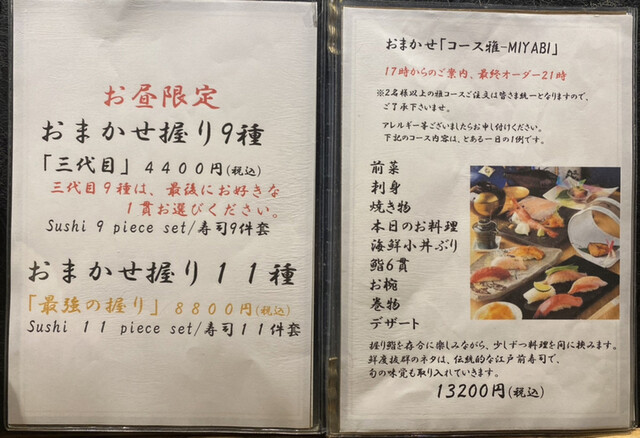 お昼限定
おまかせ握り9種
「三代目」4400円(税込)
三代目9種は、最後にお好きな
1貫お選びください。
Sushi 9 piece set/寿司9件套
おまかせ握り11種
「最強の握り」8800円(税込)
Sushi 11 piece set/寿司11件套
おまかせ「コース雅-MIYABI」
17時からのご案内、最終オーダー21時
※2名様以上の雅コースご注文は皆さま統一となりますので。
ご了承下さいませ。
アレルギー等ございましたらお申し付けください。
下記のコース内容は、とある一日の1例です。
前菜
刺身
焼き物
本日のお料理
海鮮小丼ぶり
鮨6貫
お椀
巻物
デザート
握り鮨を存分に楽しみながら、少しずつ料理を間に挟みます。
鮮度抜群のネタは、伝統的な江戸前寿司で、
旬の味覚も取り入れていきます。
13200円(税込)